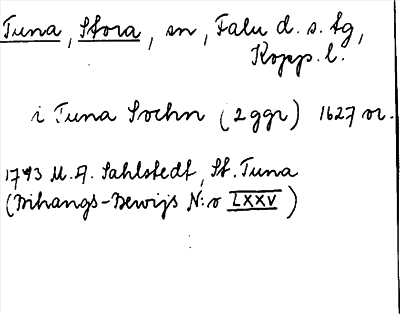 Tuna, Stora, sn, Falu d. s. tg,
Kopp. l.
i Tuna Sochn (2 ggr) 1627 or.
1793 M. A. Sahlstedt, St. Tuna
(Bihangs-Bewijs N:o LXXV)